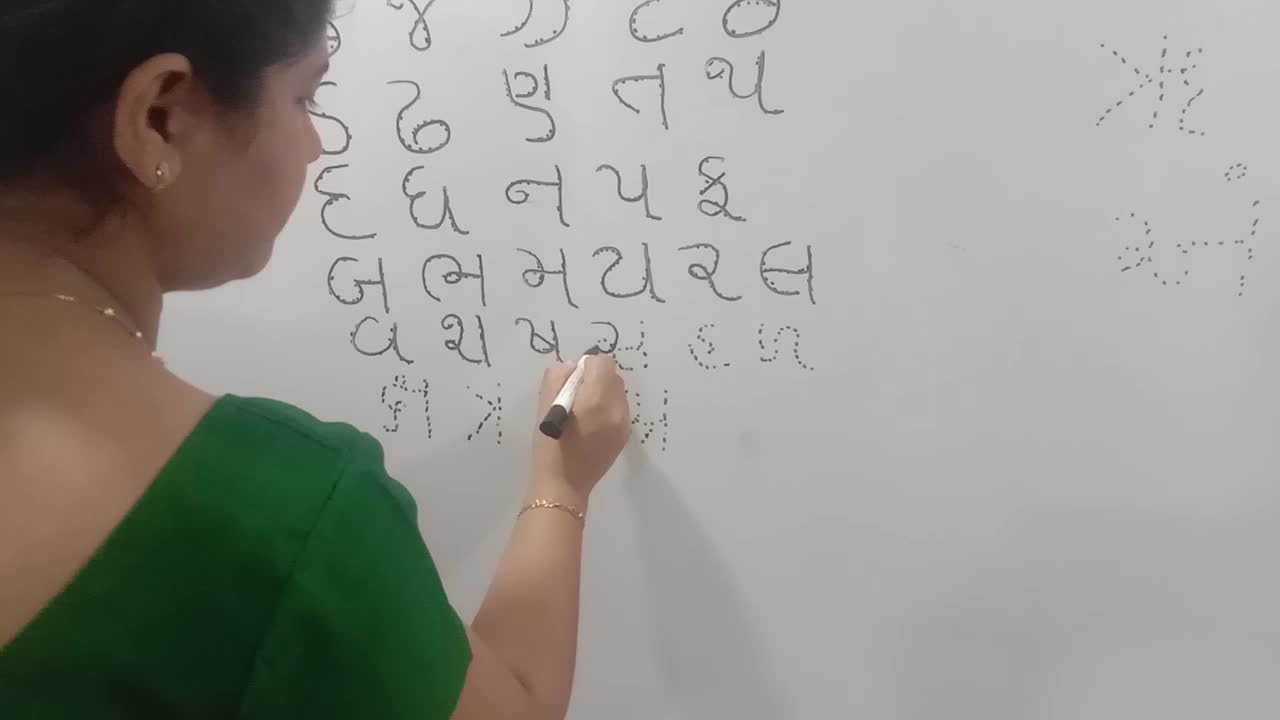 જ ઝ ટ ઠ
ડ ઢ ણ ત થ
દ ધ ન પ ફ
બ ભ મ ય ર લ
વ શ ષ સ હ ળ
ક્ષ ત્ર
ઋ
અં